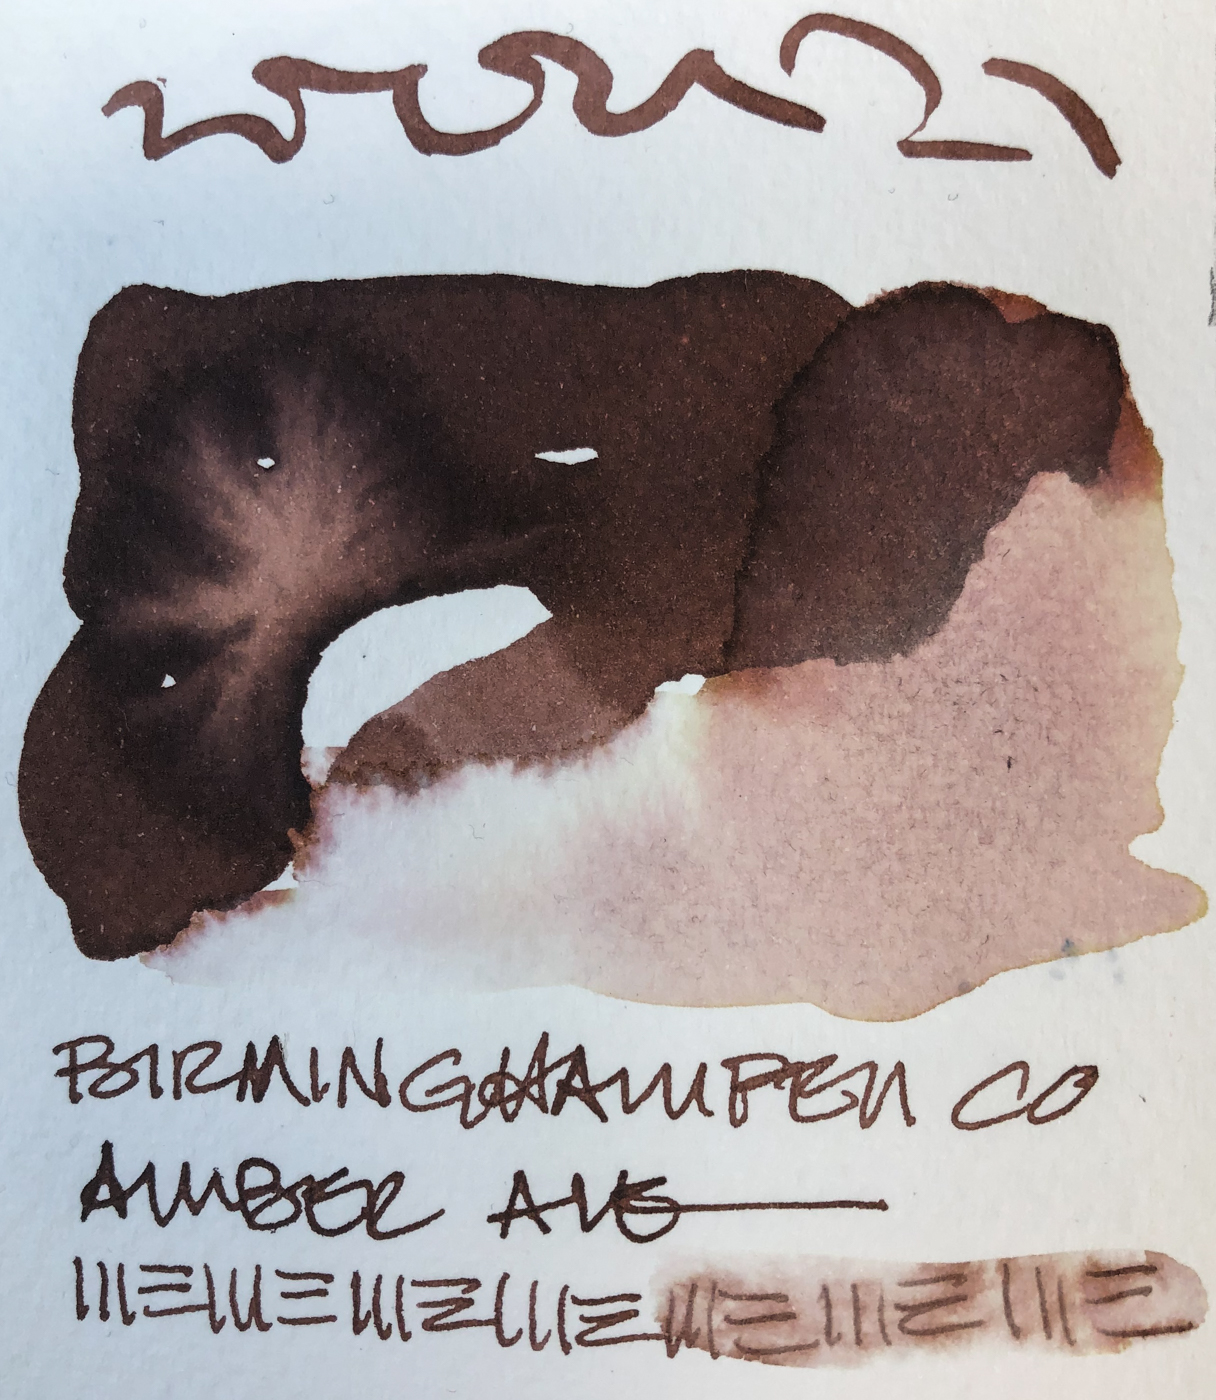 BIRMINGHAM PEN CO
AMBER ALE